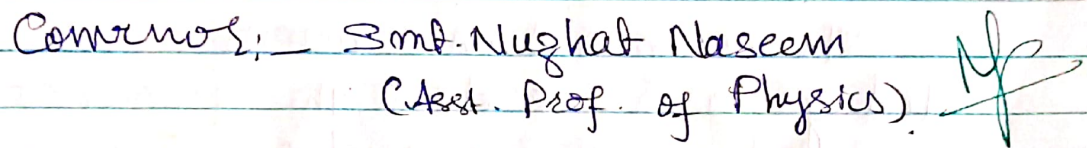 Convenor:- Smt. Nughat Naseem
(Asst. Prof. of Physics).